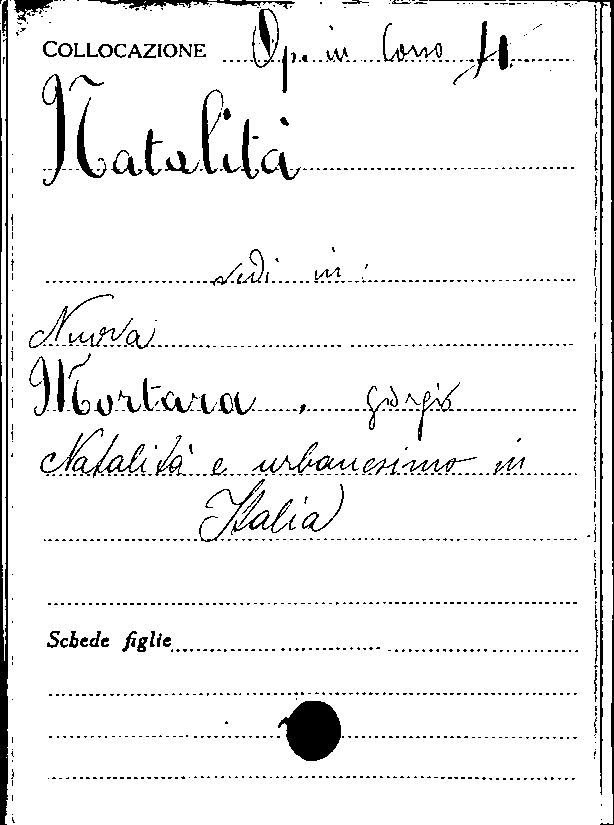 COLLOCAZIONE Op. in Corso
Natalità
vedi in :
Nuova
Mortara , Giorgio
Natalità e urbanesimo in
Italia
Schede figlie